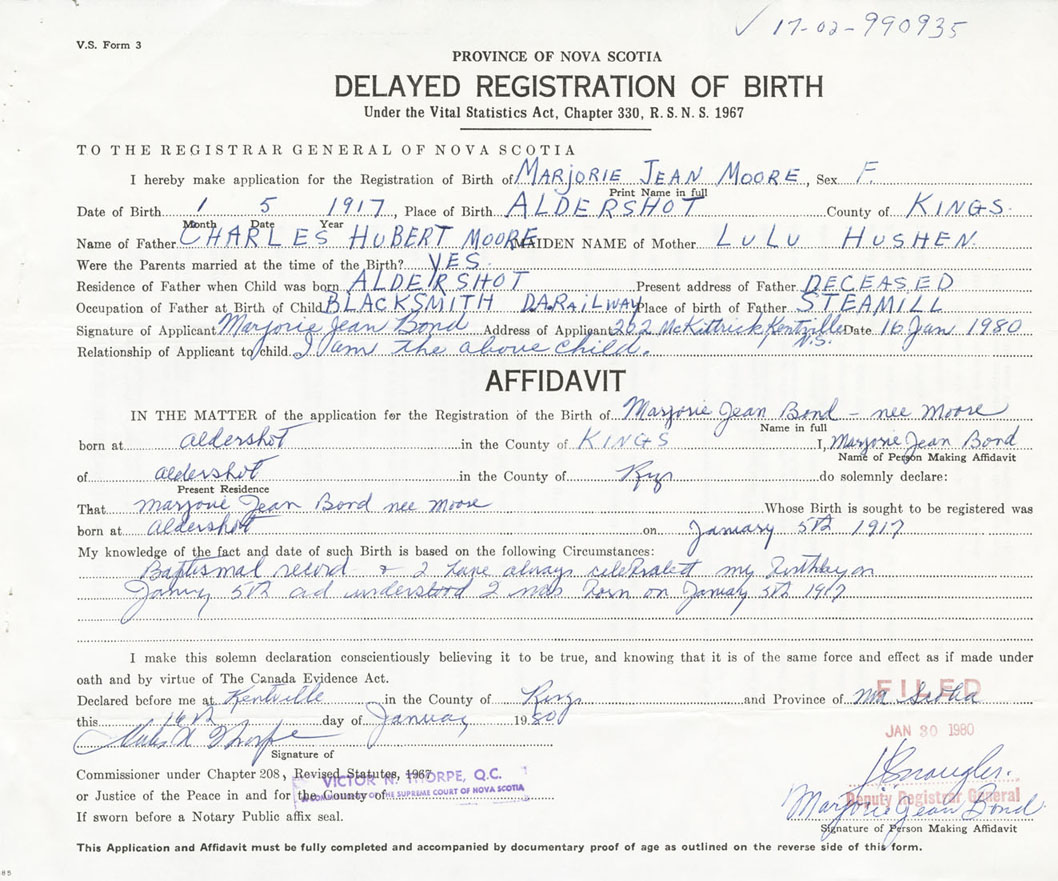 17-02-990935
V.S. Form 3
PROVINCE OF NOVA SCOTIA
DELAYED REGISTRATION OF BIRTH
Under the Vital Statistics Act, Chapter 330, R. S. N. S. 1967
TO THE REGISTRAR GENERAL OF NOVA SCOTIA
I hereby make application for the Registration of Birth of MARJORIE JEAN MOORE, Sex F.
Print Name in full
Date of Birth 1 5 1917, Place of Birth ALDERSHOT County of KINGS.
Month Date Year
Name of Father CHARLES HUBERT MOORE MAIDEN NAME of Mother LULU HUSHEN.
Were the Parents married at the time of the Birth? YES.
Residence of Father when Child was born ALDERSHOT Present address of Father DECEASED
Occupation of Father at Birth of Child BLACKSMITH D.A.RAILWAY Place of birth of Father STEAMILL
Signature of Applicant Marjorie Jean Bond Address of Applicant 262 McKittrick Kentville Date 16 Jan 1980
N.S.
Relationship of Applicant to child. I am the above child.
AFFIDAVIT
IN THE MATTER of the application for the Registration of the Birth of Marjorie Jean Bond - nee Moore
Name in full
born at Aldershot in the County of KINGS I, Marjorie Jean Bond
Name of Person Making Affidavit
of Aldershot in the County of Kings do solemnly declare:
Present Residence
That Marjorie Jean Bond nee Moore Whose Birth is sought to be registered was
born at Aldershot on January 5th 1917
My knowledge of the fact and date of such Birth is based on the following Circumstances:
Baptismal record & I have always celebrated my birthday on
January 5th and understood I was born on January 5th 1917
I make this solemn declaration conscientiously believing it to be true, and knowing that it is of the same force and effect as if made under
oath and by virtue of The Canada Evidence Act.
Declared before me at Kentville in the County of Kings and Province of Nova Scotia
FILED
this 16th day of January 1980
JAN 30 1980
Thorpe
Signature of
Commissioner under Chapter 208, Revised Statutes, 1967
VICTOR N. THORPE, Q.C.
or Justice of the Peace in and for the County of
A COMMISSIONER OF THE SUPREME COURT OF NOVA SCOTIA
Deputy Registrar General
If sworn before a Notary Public affix seal.
Marjorie Jean Bond
Signature of Person Making Affidavit
This Application and Affidavit must be fully completed and accompanied by documentary proof of age as outlined on the reverse side of this form.
85